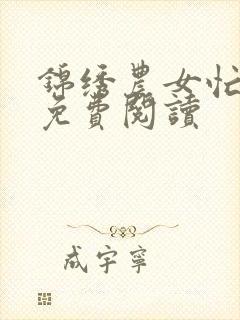 錦绣農女忙
免費閱讀
成宇寧